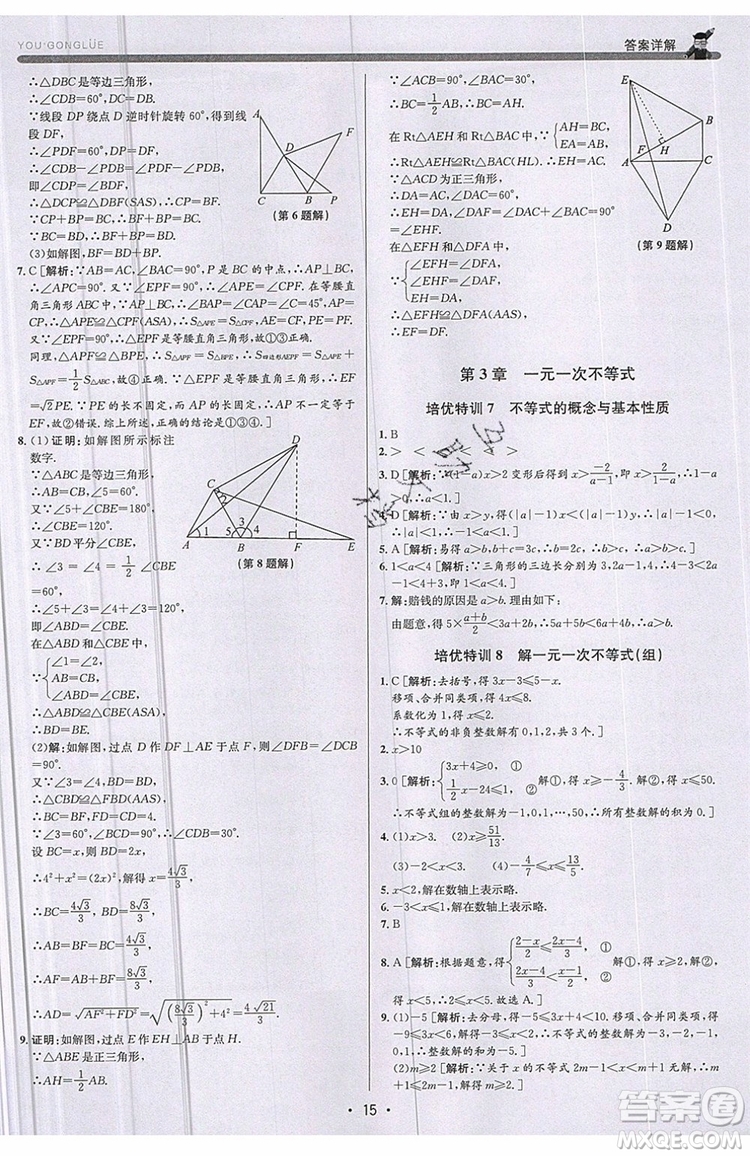 YOU'GONGLÜE
答案详解
∴△DBC是等边三角形,
∴∠CDB=60°,DC=DB.
∵线段 DP 绕点 D 逆时针旋转 60°,得到线
段 DF,
∴∠PDF=60°,DP=DF,
∴∠CDB-∠PDB=∠PDF-∠PDB,
即∠CDP=∠BDF,
∴△DCP≌△DBF(SAS),∴CP=BF.
∵CP+BP=BC,
∴BF+BP=BC.
(第6题解)
(3)如解图,BF=BD+BP.
7. C [解析:∵AB=AC,∠BAC=90°,P是BC的中点,∴AP⊥BC,
∴∠APC=90°.又∵∠EPF=90°,∴∠EPF-∠APF=∠APC-
∠APF,∴∠APE=∠CPF,∴①正确;∵∠EAP=∠C=45°,
∴△APE≌△CPF(ASA),∴S△APE=S△CPF,PE=PF.
又∵∠EPF=90°,∴△EPF是等腰直角三角形,故①③正确.
同理,△APF≌△BPE,∴S△APF=S△BPE,∴S四边形AEPF=S△APE+
S△APF=1/2 S△ABC,∴④正确;∵△EPF是等腰直角三角形,∴EF=
√2PE.∵PE长不固定,当PE不垂直AB时,EF长不固定,∴EF≠
AP,故②错误.综上所述,正确的结论有①③④.]
8. (1)证明:如解图所示标注
数字.
∵△ABC是等边三角形,
∴AC=BC,∠CAB=∠5=60°,
∴∠CBE=180°-∠5=120°.
∵∠CAB+∠ACD=180°,
∴∠ACD=120°,
∴∠CBE=∠ACD.
又∵BD平分∠CBE,
(第8题解)
∴∠3=∠4=1/2∠CBE
=60°,
∴∠5+∠3=∠4+∠3,
即∠ABD=∠CBE.
在△ABD和△CBE中,
∵{∠1=∠2,
AB=CB,
∠ABD=∠CBE,
∴△ABD≌△CBE(ASA).
(2)解:如解图,过点 D 作 DF⊥AE于点 F,∴∠BFD=∠DCB
=90°.
又∵∠3=∠4,BD=BD,
∴△CBD≌△FBD(AAS),
∴BC=BF,FD=CD=4.
∵∠3=60°,∠BCD=90°,∴∠BDC=30°,∴BD=2BC.
设 BC=x,则BD=2x,
∴4²+x²=(2x)²,解得x=4√3/3,
∴BC=4√3/3,BD=8√3/3,
∴AB=BF=4√3/3,
∴AF=AB+BF=8√3/3,
∴AD=√(AF²+FD²)=√((8√3/3)²+4²)=4√21/3.
9. 证明:如解图,过点 E 作EH⊥AB于点H.
∵△ABE是正三角形,
∴AH=1/2 AB.
∵∠ACB=90°,∠BAC=30°,
∴BC=1/2 AB,∴AH=BC.
在Rt△AEH和Rt△BAC中,{AH=BC,
EA=AB,
∴Rt△AEH≌Rt△BAC(HL),∴EH=AC.
∵△ACD为正三角形,
∴AD=AC,∠CAD=60°,
∴EH=DA,∠DAF=∠BAC+∠CAD=90°,
∴∠EHF=∠DAF.
在△EFH和△DFA中,
(第9题解)
∵{∠EHF=∠DAF,
∠EFH=∠DFA,
EH=DA,
∴△EFH≌△DFA(AAS),
∴EF=DF.
第3章 一元一次不等式
培优特训7 不等式的概念与基本性质
1. B
2. > < < >
3. D [解析:∵(1-a)x>2变形后得到x>-2/(a-1),即x>2/(1-a),∴1-a
>0,∴a<1.]
4. D [解析:由x>y,得(|a|-1)x<(|a|-1)y,∴|a|-1<0,
∴|a|<1,∴-1<a<1.]
5. A [解析:易得a>b,b+c=3b,∴b<c=2b,∴a>b,c>b.]
6. 1<a<4 [解析:∵三角形的三边长分别为3,2a-1,4,∴4-3<
2a-1<4+3,即1<a<4.]
7. 解:赔钱的原因是a>b.理由如下:
由题意,得5×(a+b)/2<3a+2b,∴5a+5b<6a+4b,∴a>b.
培优特训8 解一元一次不等式(组)
1. C [解析:去括号,得3x-3≤5-x.
移项、合并同类项,得4x≤8.
系数化为1,得x≤2.
∴不等式的非负整数解有0,1,2,共3个.]
2. x>10
3. 0 [解析:{3x+4≥0,①
1/2x-24≤1,② 解①,得x≥-4/3.解②,得x≤50.
∴不等式组的整数解为-1,0,1,…,50,∴所有整数解的积为0.]
4. (1)x>3. (2)x≥51/13.
(3)-1<x<3. (4)2≤x<8.
5. x<2,解在数轴上表示略.
6. -3≤x<2,解在数轴上表示略.
7. B
8. A [解析:根据题意,得{(2-x)/2≤(2x-4)/3,①
2-x≤x-2,② 解①,得x≥2,解②,
得x≥2.∴不等式组的解为x≥2.]
9. (1)-5 [解析:去分母,得-6x-4≤3x+41.移项、合并同类项,得
-9x≤45,∴x≥-5,∴不等式的最小整数解为-5.]
(2)m≥2 [解析:∵关于x的不等式组{x<2m,
x>4m-4无解,∴4m-4≥
2m,∴m≥2.]
15
答案圈
MXQE.COM